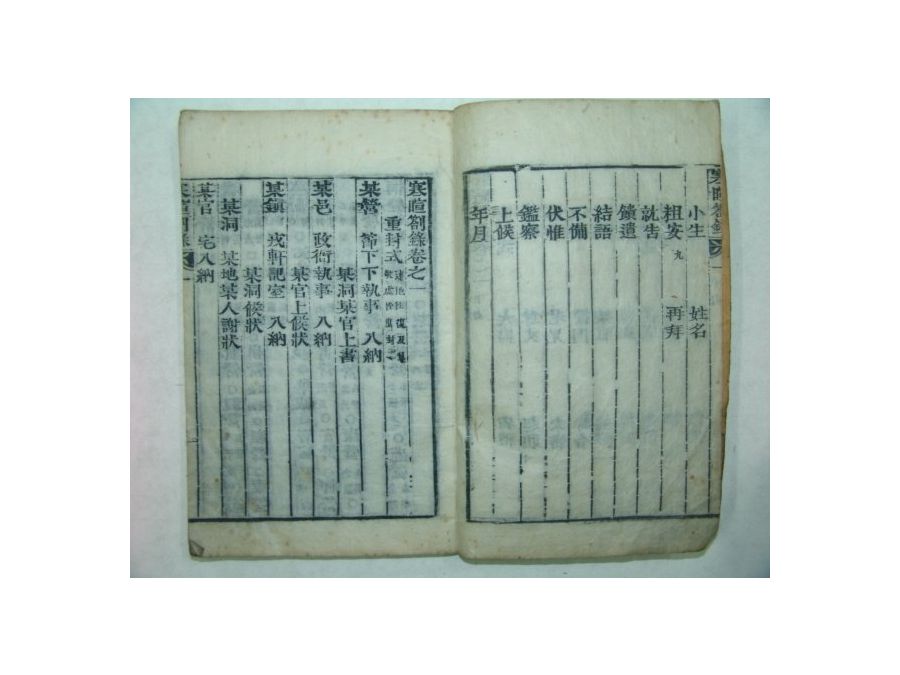 小生 姓名
粗安 九 再拜
就告
饋遺
結語
不備
伏惟
鑑察
上候
年月
寒暄劄錄卷之一
重封式
某營 節下下執事 入納
某洞某官上書
某邑 政衙執事 入納
某官上候狀
某鎭 戎軒記室 入納
某洞候狀
某洞 某地某人謝狀
某官 宅入納
寒暄劄錄 一